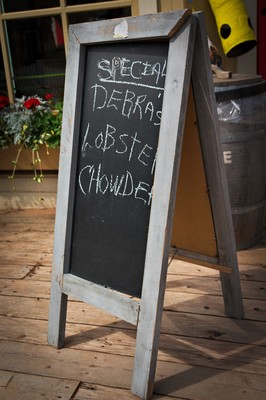 SPECIAL
DEBRA'S
LOBSTER
CHOWDER